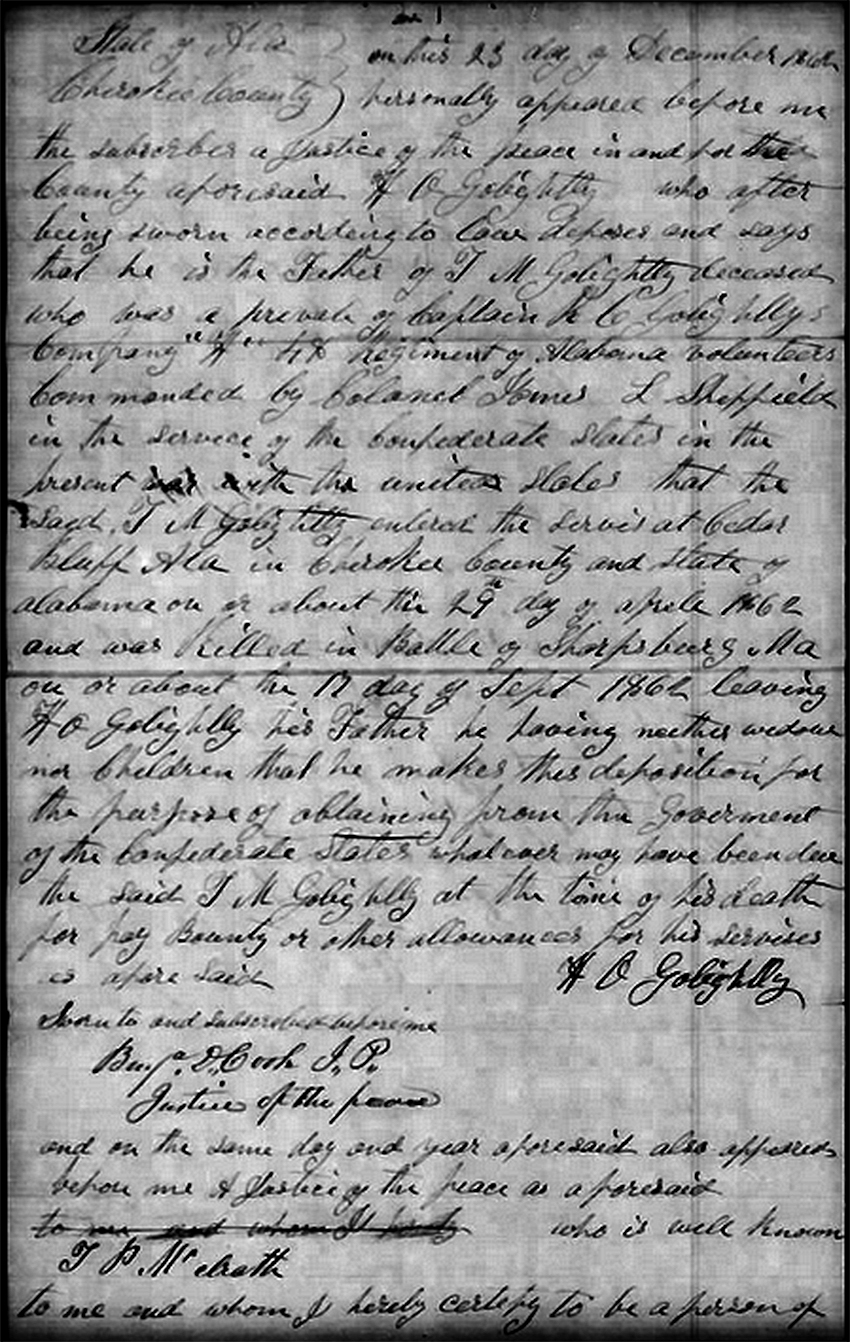 State of Ala } on this 23 day of December 1862
Cherokee County ) personally appeared before me
the subscriber a Justice of the peace in and for the
County aforesaid H O Golightly who after
being sworn accordeing to Law deposes and says
that he is the Father of T M Golightly deceased
who was a private of Captain R C Golightlys
Company "H" 48 Regiment of Alabama volunteers
Commanded by Colonel James L Sheffield
in the service of the Confederate States in the
present war with the united States that the
said T M Golightly entered the servis at Cedar
Bluff Ala in Cherokee County and State of
alabama on or about the 29th day of aprile 1862
and was Killed in Battle of Sharpsburg Ma
on or about the 17 day of Sept 1862 leaving
H O Golightly his Father he having neither widow
nor Children that he makes this deposition for
the purpose of obtaining from the Goverment
of the Confederate States whatever may have been due
the said T M Golightly at the time of his death
for pay Bounty or other allowances for his servises
as afore said H O Golightly
Sworn to and subscribed before me
Benja. D. Cook J. P.
Justice of the peace
and on the same day and year aforesaid also appeared
before me A Justice of the peace as aforesaid
to me and whom I hereby who is well known
T P McElrath
to me and whom I hereby certefy to be a person of